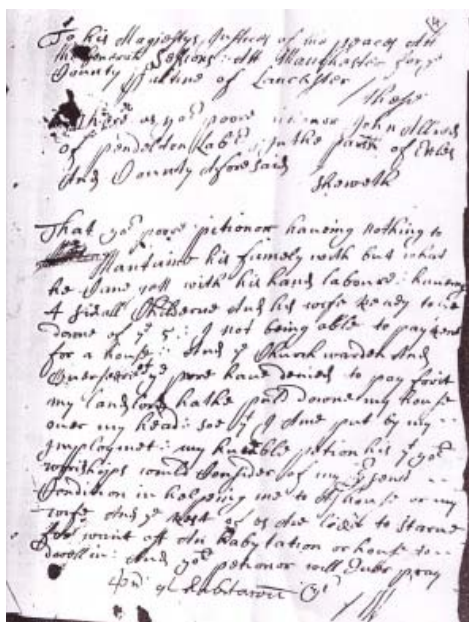 To his Magiestys Justices of his peace Att
the Generall Sessions: Att Manchester for ye
County Pallatine of Lancaster
These
Whereas yor poore John
of Pendelton Labr: in the parish of Ecles
And County Aforesaid
Sheweth
That yor poore petionor haveing nothing to
Mantaine his famely with but what
he Came gett with his hands laboure: haveing
4 Small Childerne And his wife Ready to lie
downe of ye 5: I not being able to pay Rent
for a house: And ye Church warden And
Overseer of ye pore have denied to pay for it
my landlord hathe puld downe my house
over my head: soe yt I Ame put by my
Imploymet: my humble petion his yt yor
worships would Consider of my
Condition in helpeing me to A house or my
wife And ye Rest of us Are like to starve
for want off An habytation or house to
dwell in: And yor petionor will Ever pray